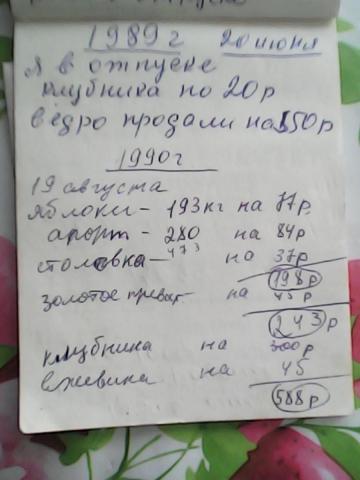 1989г 20 июня
Я в отпуске
клубника по 20р
ведро продали на 550р
1990г
19 августа
яблоки - 193кг на 77р
апорт - 280 на 84р
473
столовка - на 37р
198р
золотое превосх. на 45р
243р
клубника на 300р
ежевика на 45
588р